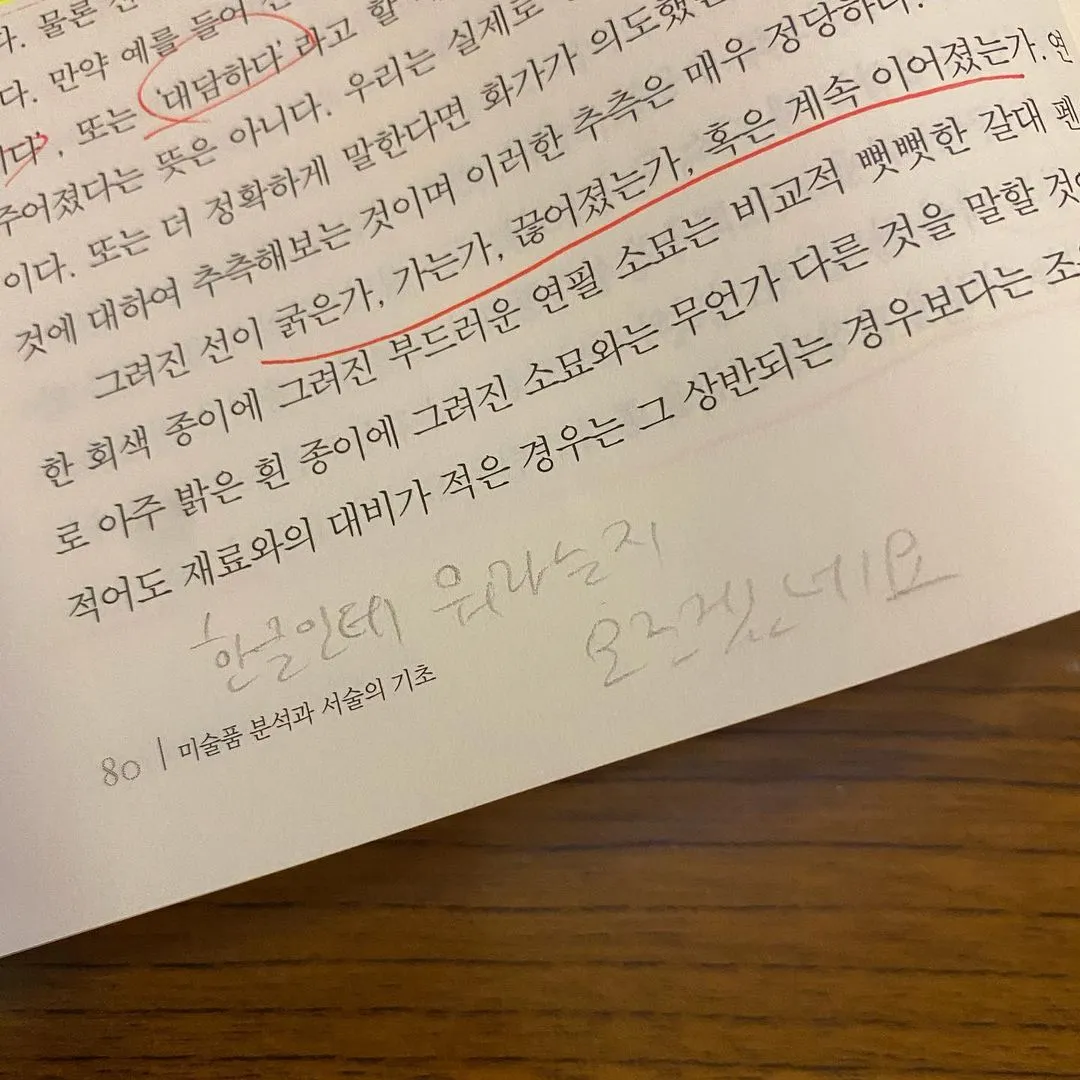 다. 물론
다. 만약 예를 들어
다', 또는 '대담하다'라고 할
주어졌다는 뜻은 아니다. 우리는 실제로
이다. 또는 더 정확하게 말한다면 화가가 의도했
것에 대하여 추측해보는 것이며 이러한 추측은 매우 정당하다.
그려진 선이 굵은가, 가는가, 끊어졌는가, 혹은 계속 이어졌는가. 연
한 회색 종이에 그려진 부드러운 연필 소묘는 비교적 뻣뻣한 갈대 펜
로 아주 밝은 흰 종이에 그려진 소묘와는 무언가 다른 것을 말할 것
적어도 재료와의 대비가 적은 경우는 그 상반되는 경우보다는 조
한글인데 뭐라는지
모르겠네요
80 | 미술품 분석과 서술의 기초